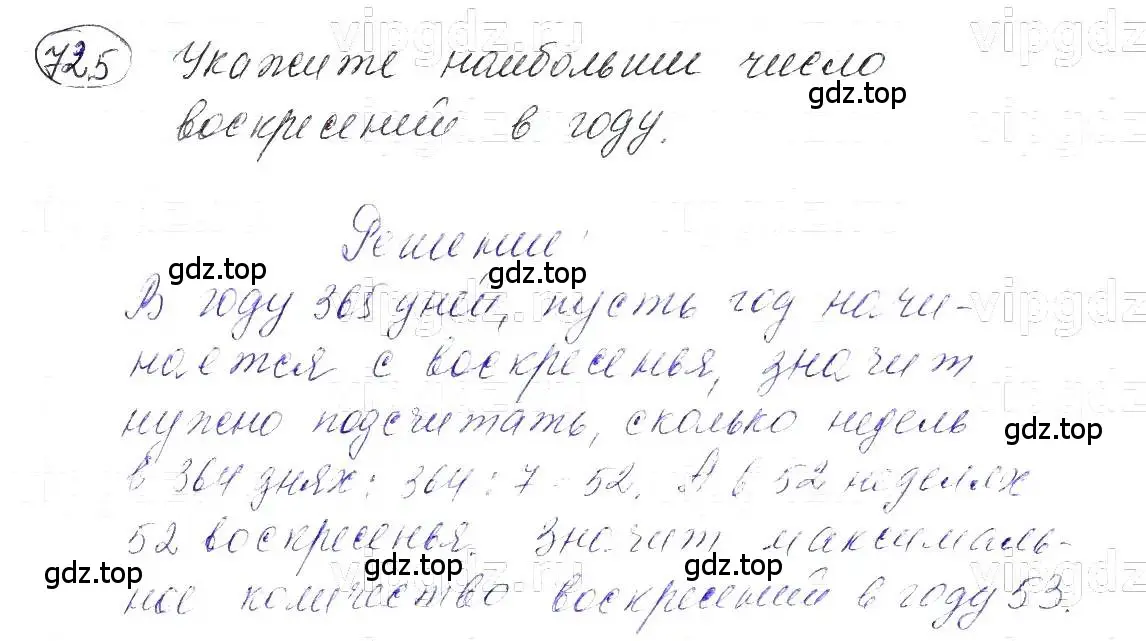 725 Укажите наибольшии число
gdz.top
воскресений в году.
Решение:
gdz.top gdz.top
В году 365 дней, пусть год начи-
нается с воскресенья, значит
нужно подсчитать, сколько недель
gdz.top
в 364 днях: 364 : 7 = 52. А в 52 неделях
52 воскресенья. Значит максималь-
gdz.top gdz.top gdz.top
ное количество воскресений в году 53.